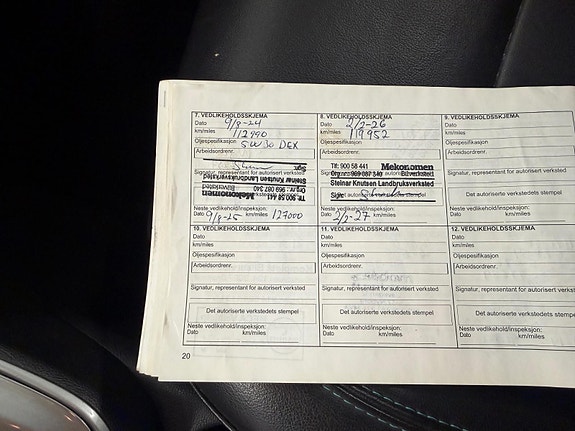 7. VEDLIKEHOLDSSKJEMA
Dato 9/8-24
km/miles 112990
Oljespesifikasjon 5W30 DEX
Arbeidsordrenr.
Signatur, representant for autorisert verksted
Sign
Steinar Knutsen Landbruksverksted
Org.nr. 969 087 340 Bilverksted
Tlf: 900 58 441 Mekonomen
Neste vedlikehold/inspeksjon:
Dato 9/8-25 km/miles 127000
8. VEDLIKEHOLDSSKJEMA
Dato 2/2-26
km/miles 119952
Oljespesifikasjon
Arbeidsordrenr.
Tlf: 900 58 441 Mekonomen
Org.nr: 969 087 340 Bilverksted
Signatur, representant for autorisert verksted
Steinar Knutsen Landbruksverksted
Sign
Neste vedlikehold/inspeksjon:
Dato 2/2-27 km/miles
9. VEDLIKEHOLDSSKJEMA
Dato
km/miles
Oljespesifikasjon
Arbeidsordrenr.
Signatur, representant for autorisert
Det autoriserte verkstedets stempel
Neste vedlikehold/inspeksjon:
Dato km/miles
10. VEDLIKEHOLDSSKJEMA
Dato
km/miles
Oljespesifikasjon
Arbeidsordrenr.
Signatur, representant for autorisert verksted
Det autoriserte verkstedets stempel
Neste vedlikehold/inspeksjon:
Dato km/miles
11. VEDLIKEHOLDSSKJEMA
Dato
km/miles
Oljespesifikasjon
Arbeidsordrenr.
Signatur, representant for autorisert verksted
Det autoriserte verkstedets stempel
Neste vedlikehold/inspeksjon:
Dato km/miles
12. VEDLIKEHOLDSSKJEMA
Dato
km/miles
Oljespesifikasjon
Arbeidsordrenr.
Signatur, representant for autorisert
Det autoriserte verkstedets stempel
Neste vedlikehold/inspeksjon:
Dato km/miles
20